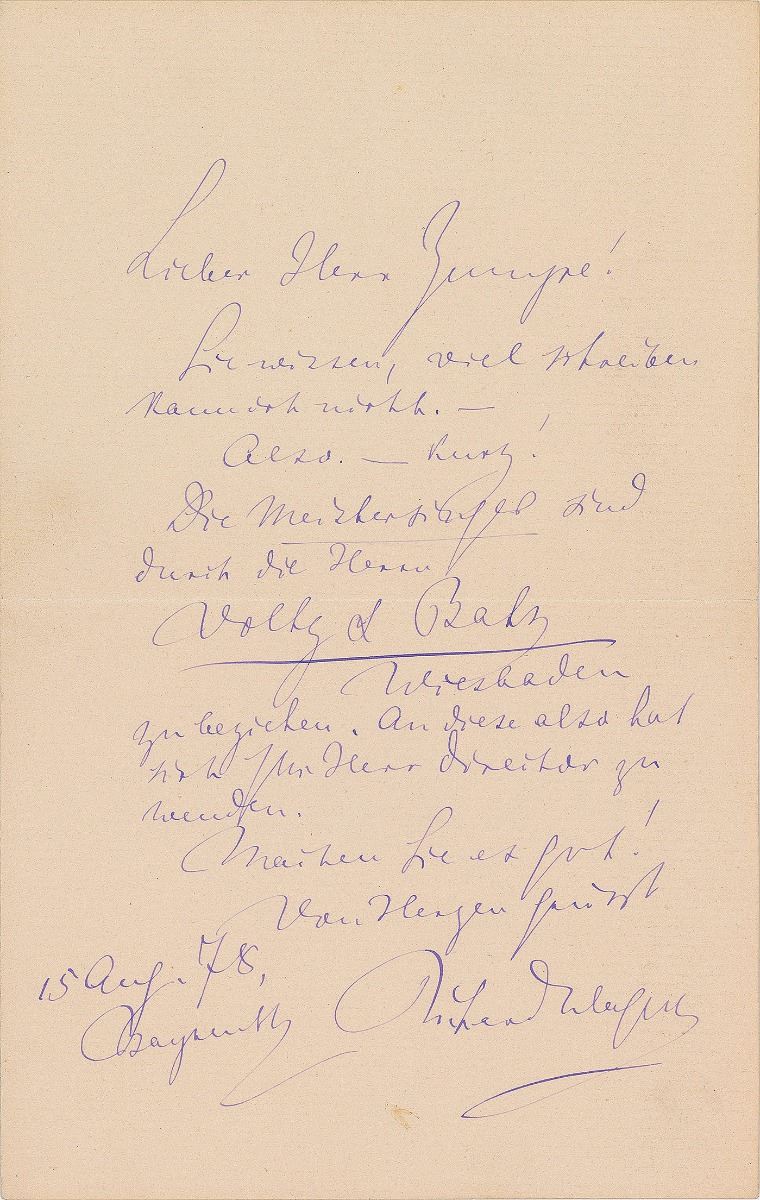 Lieber Herr Zumpe!
Sie wissen, viel schreiben
kann ich nicht. —
Also. — kurz!
Die Meistersinger sind
durch die Herrn
Voltz & Batz
Wiesbaden
zu beziehen. An diese also hat
sich Ihr Herr Director zu
wenden.
Machen Sie es gut!
Von Herzen grüsst
15 Aug. 78,
Richard Wagner
Bayreuth